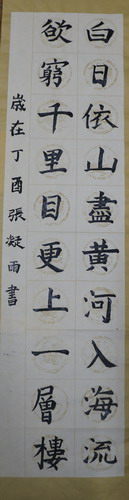 白日依山盡黃河入海流
欲窮千里目更上一層樓
歲在丁酉張凝雨書